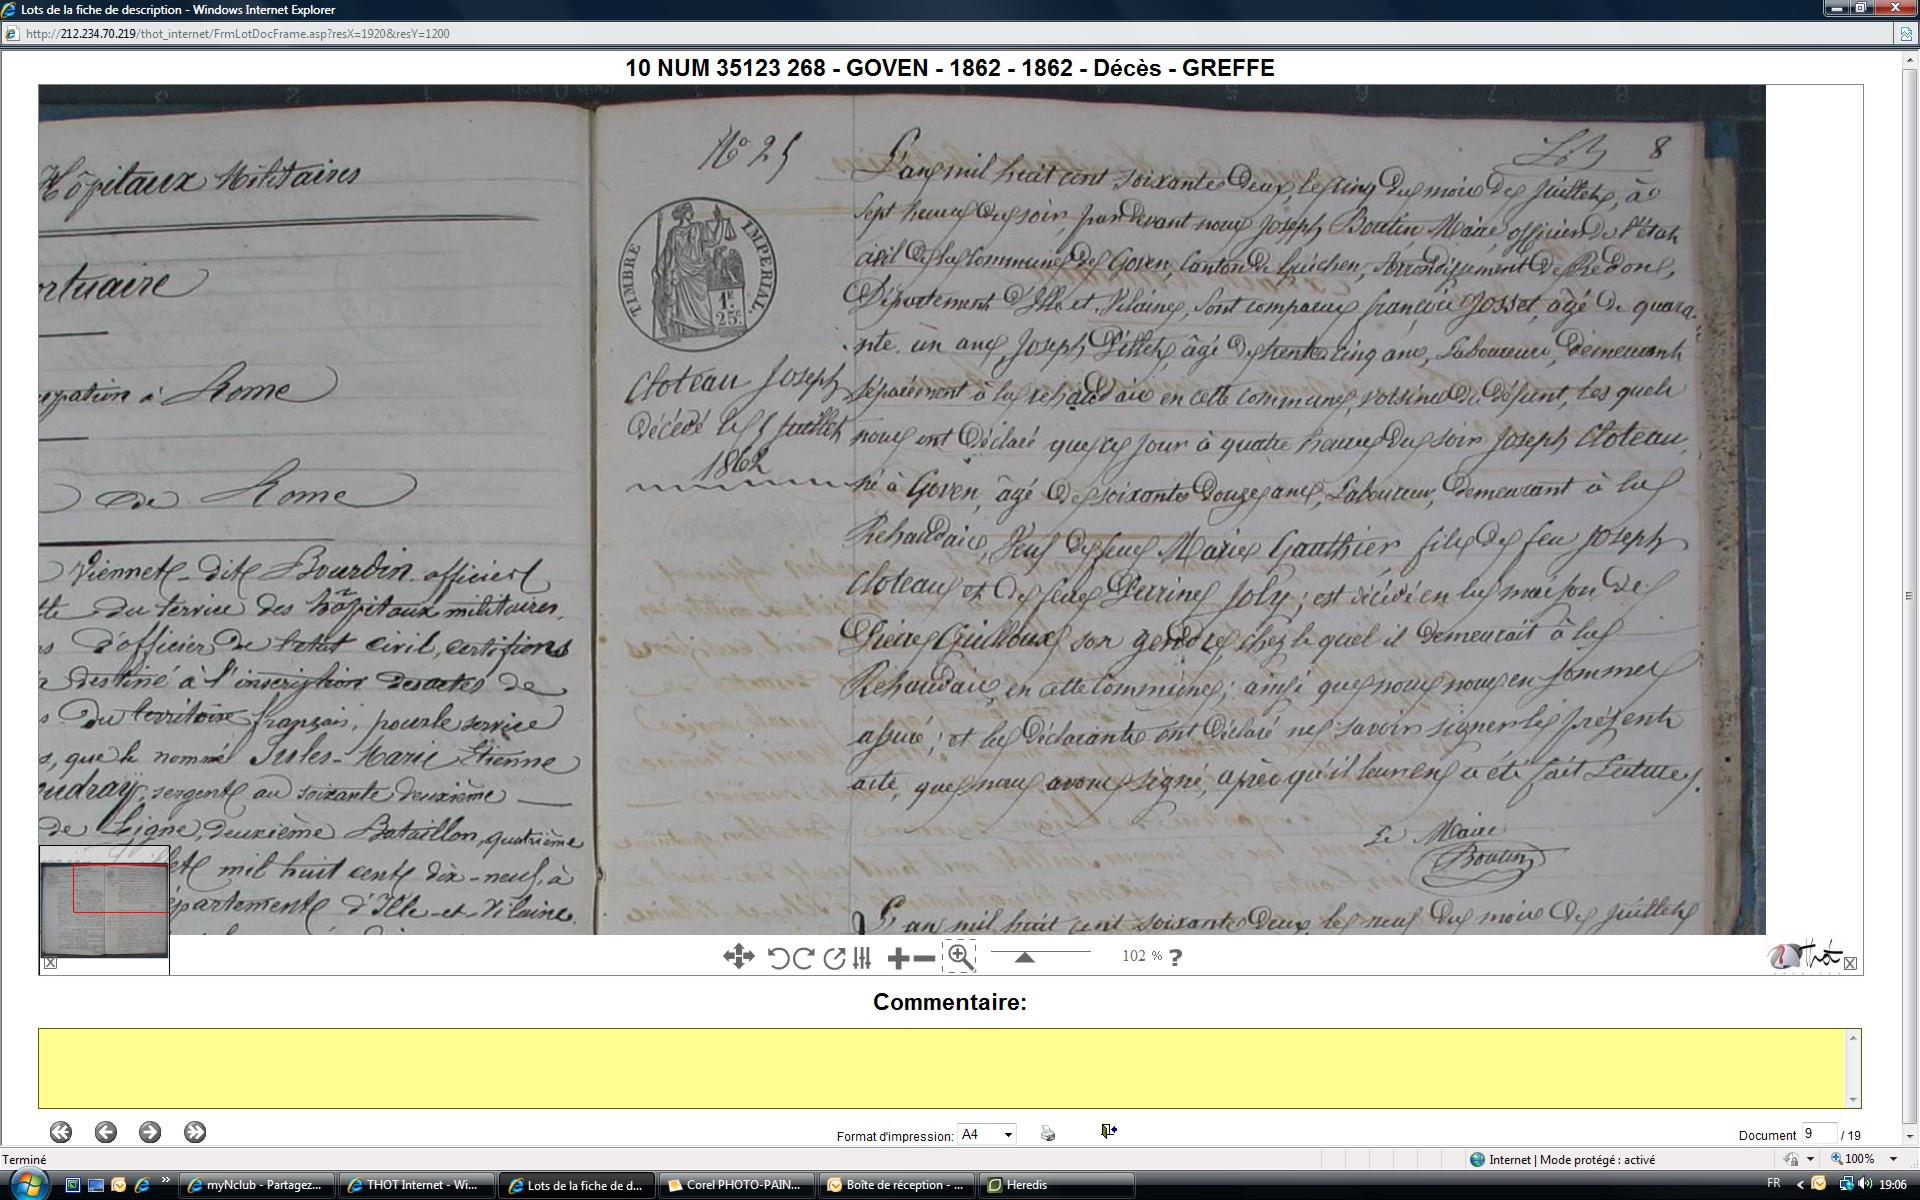 Lots de la fiche de description - Windows Internet Explorer
http://212.234.70.219/thot_internet/FrmLotDocFrame.asp?resX=1920&resY=1200
10 NUM 35123 268 - GOVEN - 1862 - 1862 - Décès - GREFFE
Hôpitaux Militaires
rtuaire
upation à Rome
de Rome
Viennet dit Bourdin officier
du service des hôpitaux militaires,
d'officier de l'état civil, certifions
destiné à l'inscription des actes de
du territoire français, pour le service
, que le nommé Jules-Marie Etienne
oudray, sergent au soixante deuxième
de Ligne, deuxième Bataillon, quatrième
mil huit cent dix-neuf, à
épartement d'Ille-et-Vilaine
N° 25
TIMBRE IMPERIAL.
1F
25c
Cloteau Joseph
décédé le 5 Juillet
1862
8
L'an mil huit cent soixante deux, le cinq du mois de Juillet, à
sept heures du soir, par devant nous Joseph Boutin Maire, officier de l'état
civil de la Commune de Goven, Canton de Guichen, Arrondissement de Redon,
Département d'Ille et Vilaine, sont comparus françois Josset, âgé de quara-
nte un ans, Joseph âgé de trente cinq ans, Laboureurs, demeurant
séparément à la rehaudais en cette commune, voisins du défunt, les quels
nous ont déclaré que ce jour à quatre heures du soir Joseph Cloteau,
né à Goven, âgé de soixante douze ans, Laboureur, demeurant à la
Rehaudais, Veuf de feue Marie Gauthier fils de feu Joseph
Cloteau et de feue Perrine Joly ; est décédé en la maison de
Pierre Guilloux son gendre, chez le quel il demeurait à la
Rehaudais, en cette Commune ; ainsi que nous nous en sommes
assuré ; et les déclarants ont déclaré ne savoir signer le présent
acte, que nous avons signé, après qu'il leur en a été fait Lecture.
Le Maire
Boutin
L'an mil huit cent soixante deux, le neuf du mois de Juillet
102 % ?
Thot
Commentaire:
Format d'impression: A4
Document 9 / 19
Terminé
Internet | Mode protégé : activé
100%
myNclub - Partagez...
THOT Internet - Wi...
Lots de la fiche de d...
Corel PHOTO-PAIN...
Boîte de réception - ...
Heredis
FR
19:06